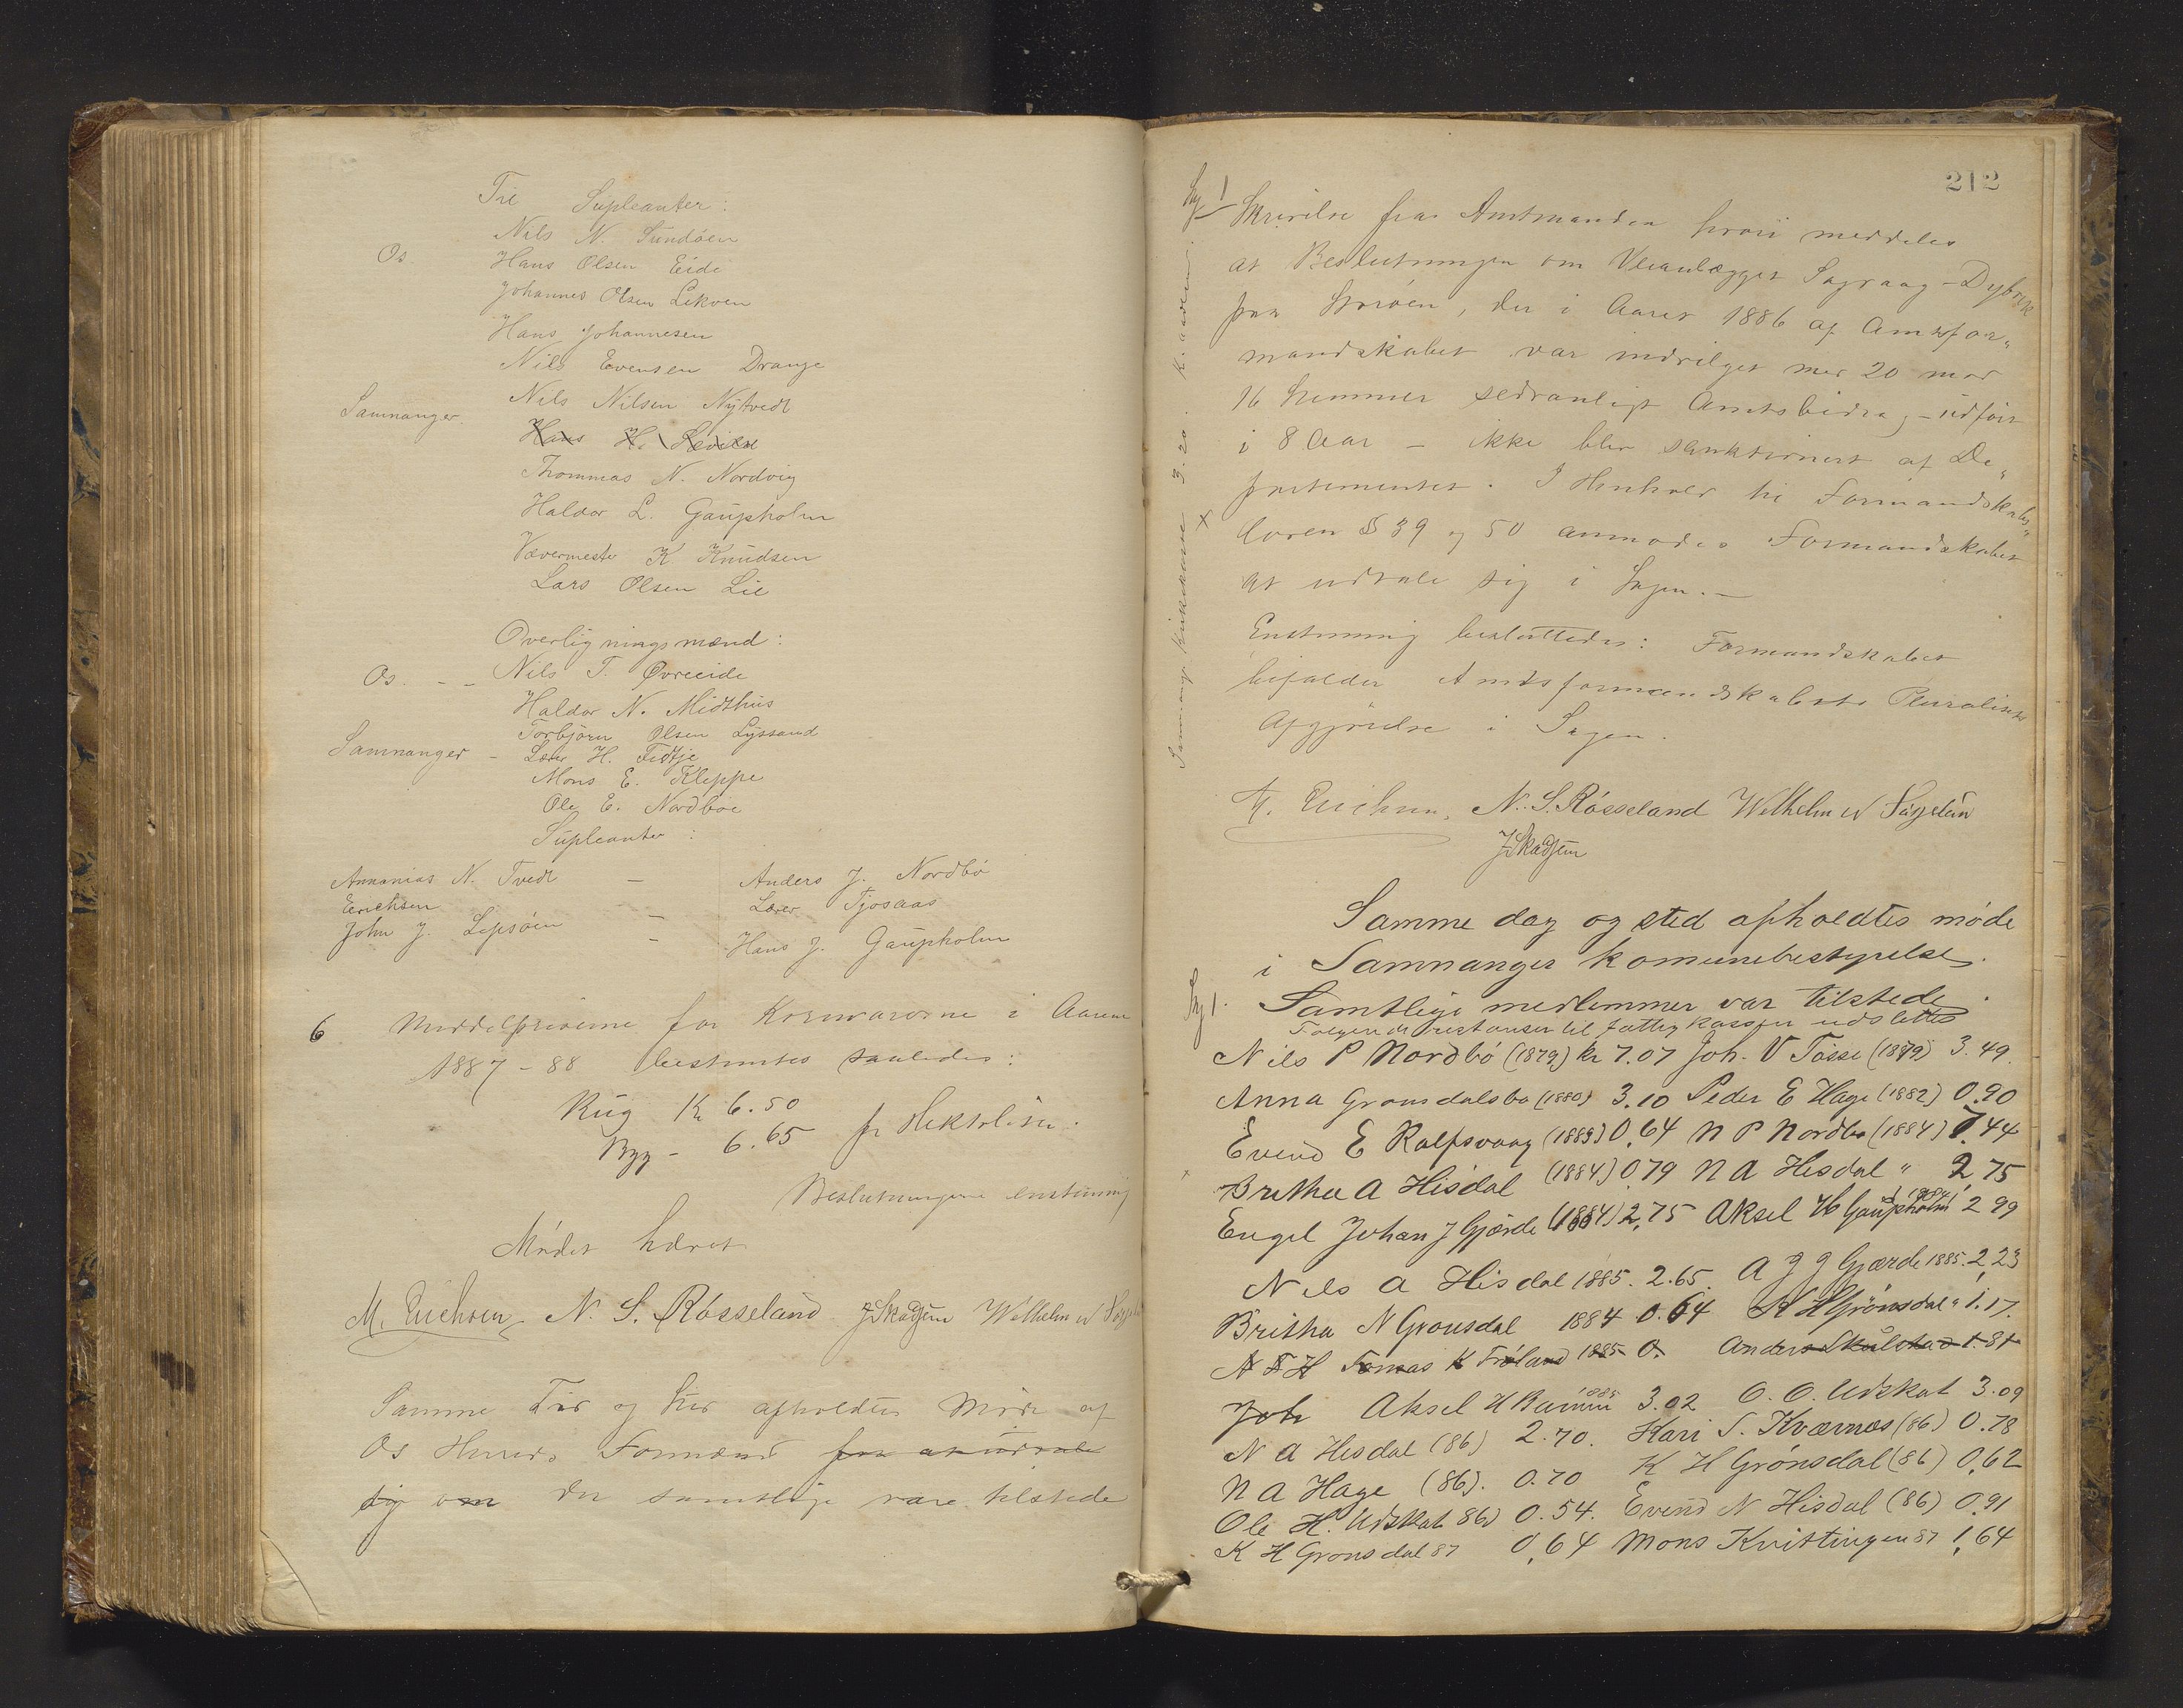 Til Supleanter:
Nils N. Sundøen
Os. Hans Olsen Eide
Johannes Olsen Lekven
Hans Johannesen
Nils Evensen Drange
Samnanger. Nils Nilsen Nytvedt
Hans H.
Thommas N. Nordvig
Haldor L. Gaupholm
Vævermester K Knudsen
Lars Olsen Lie
Overligningsmænd:
Os. - - Nils T. Øvreeide
Haldor N. Midthus
Torbjørn Olsen Lyssand
Samnanger - Lærer H. Tidtje
Mons E. Kleppe
Ole E. Nordboe
Supleanter:
Annanias N. Tvedt - Anders J. Nordbø
Erichsen Lærer Tjosaas
John J. Lepsøen - Hans J. Gaupholm
6 Middelpriserne for Kornvarerne i Aarene
1887-88 bestemtes saaledes:
Rug Kr 6.50
Byg - 6.65 pr Hektoliter.
Beslutningene enstemmig
Mødet hævet
M. Erichsen N. S. Røsseland J Skadsem Wilhelm N
Samme Tid og Sted afholdtes Møde af
Os Herreds Formænd for at udtale
sig om der samtlige vare tilstede
212
Sag 1 Skrivelse fra Amtmanden hvori meddeles
at Beslutningen om Veianlægget Sagvaag - Dybvik
paa Storøen, der i Aaret 1886 af Amtsfor„
mandskabet var indvilget med 20 mod
16 Stemmer sedvanligt Amtsbidrag - udført
i 8 Aar - ikke blev sanktioneret af De„
partementet. I Henhold til Formandskabs„
loven § 39 og 50 anmodes Formandskabet
at udtale sig i Sagen. -
Enstemmig besluttedes: Formandskabet
bifalder Amtsformandskabets Pluralitets
Afgjørelse i Sagen.
M. Erichsen, N. S. Røsseland Wilhelm N
J Skadsem
Samme dag og sted afholdtes møde
i Samnanger komunebestyrelse.
Sag 1. Samtlige medlemmer var tilstede.
Følgende restanser til fattigkassen udslettes
Nils P Nordbø (1879) kr 7.07 Joh. V Tøsse (1879) 3.49.
Anna Gronsdalsbo (1880) 3.10 Peder E Hage (1882) 0.90
Evend E Rolfsvaag (1883) 0,64 N P Nordbø (1884) 7.44
Britha A Hisdal (1884) 0,79 N A Hisdal " 2 75
Engel Johan J Gjærde (1884) 2,75 Aksel H Gaupholm (1884) 2 99
Nils A Hisdal 1885. 2.65. A J J Gjærde 1885. 2,23
Britha N Gronsdal 1884 0.64 K H Grønsdal " 1.17.
N T H Tomas K Frøland 1885 0. Anders Skulstad 1.81
Joh Aksel H 1885 3.02 O. O. Udskot 3.09
N A Hisdal (86) 2.70. Kari S. Kværnæs (86) 0.78
N A Hage (86). 0.70 K H Grønsdal (86) 0,62
Ole H. Udskot 86) 0.54. Evend N Hisdal (86) 0,91
K H Gronsdal 87 0,64 Mons Kvittingen 87 1,64